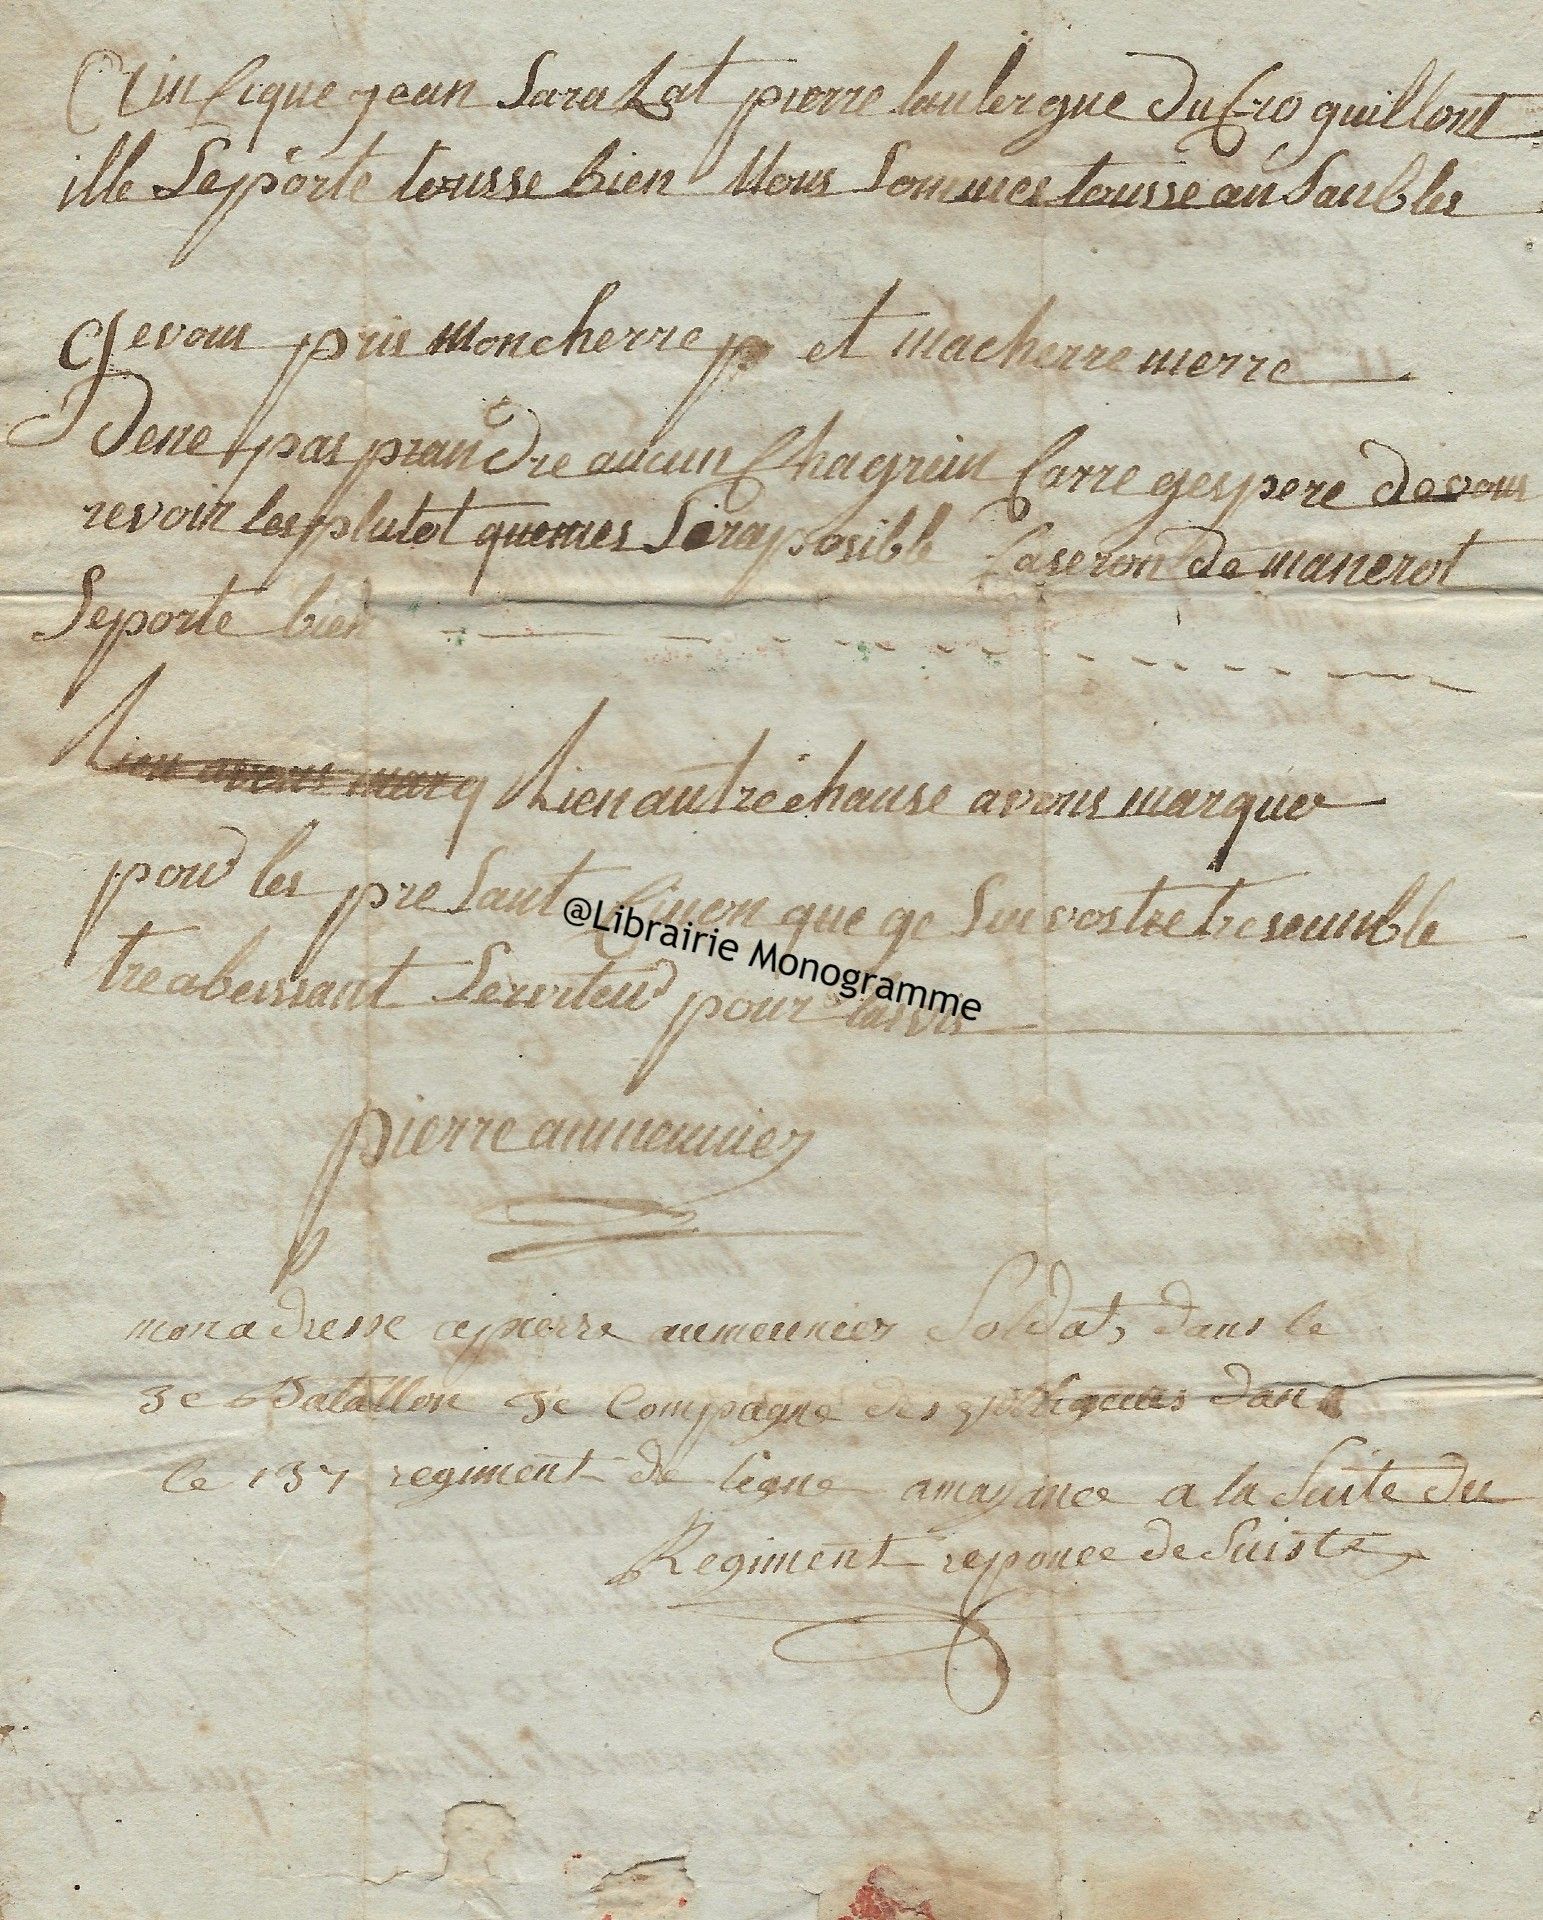 Ein cique gean Sara Lat pierre laubergue du Cro guillont
ille Seporte tousse bien Nous Sommes tousse an Sanbles
ge vous prie mon cherre p et ma cherre merre
de ne pas prandre aucun Chagrein Carre gespere de vous
revoir les plutot quemes Sera posible Caseron de manerot
Seporte bien
Rien avous marq Rien autre chause avous marquer
pour les pre Sant Cinon que ge Sui vostre tres eumble
tre abeissant Serviteur pour la vis
@Librairie Monogramme
pierre aumeunier
mon adresse a pierre aumeunier Soldat, dans le
3e Batallon 3e Compagne des dans
le 137 regiment de ligne a mayance a la Suite du
Regiment reponce de Suiste